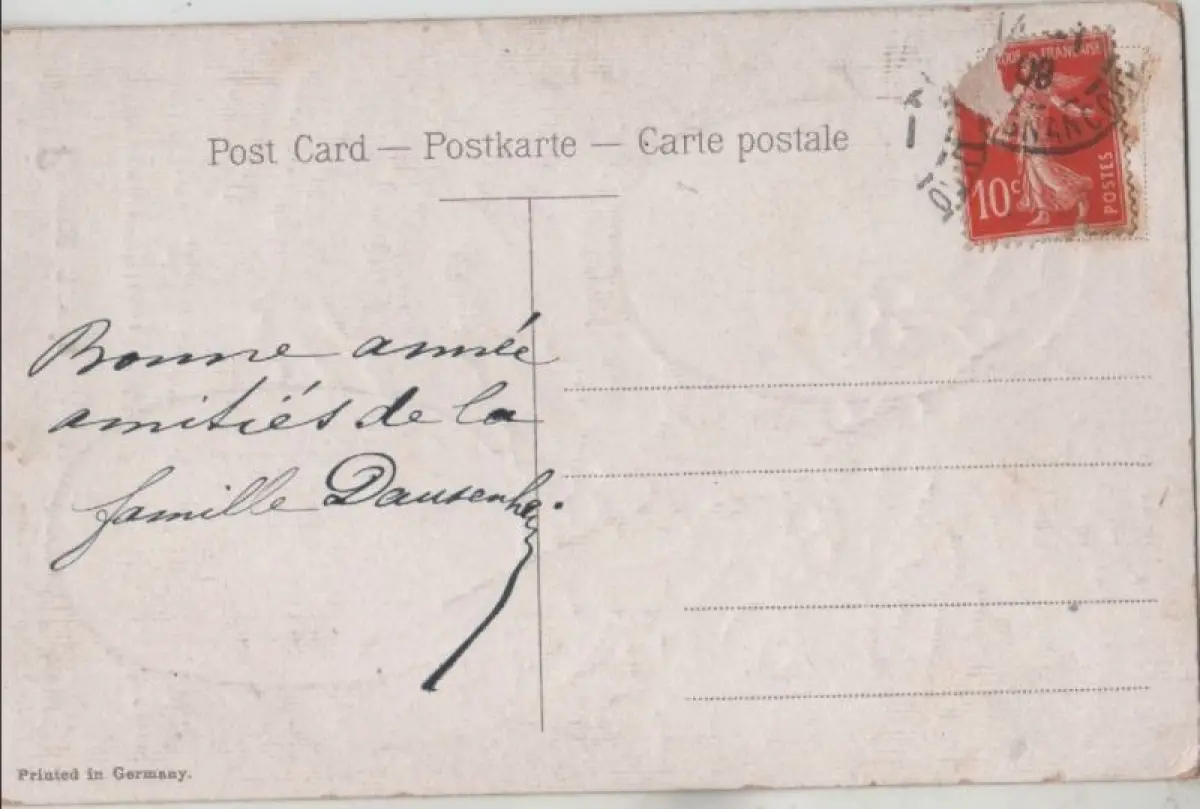 Post Card — Postkarte — Carte postale
10c
POSTES
08
Bonne année
amitiés de la
famille
Printed in Germany.